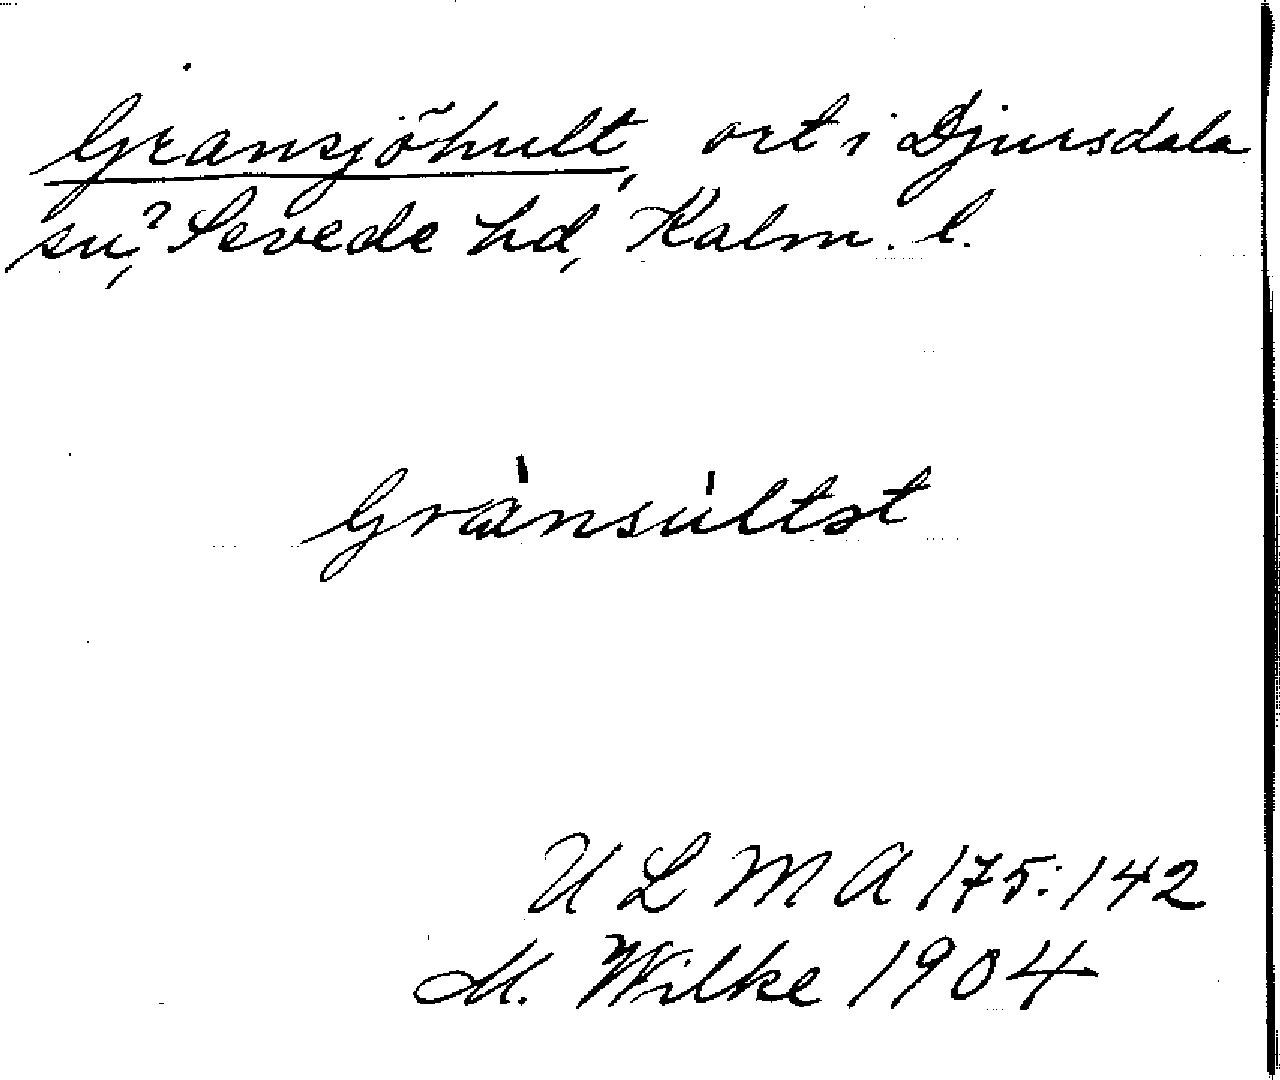 Gransjöhult, ort i Djursdala
sn,? Sevede hd, Kalm. l.
Grànsúltət
U L M A 175:142
M. Wilke 1904